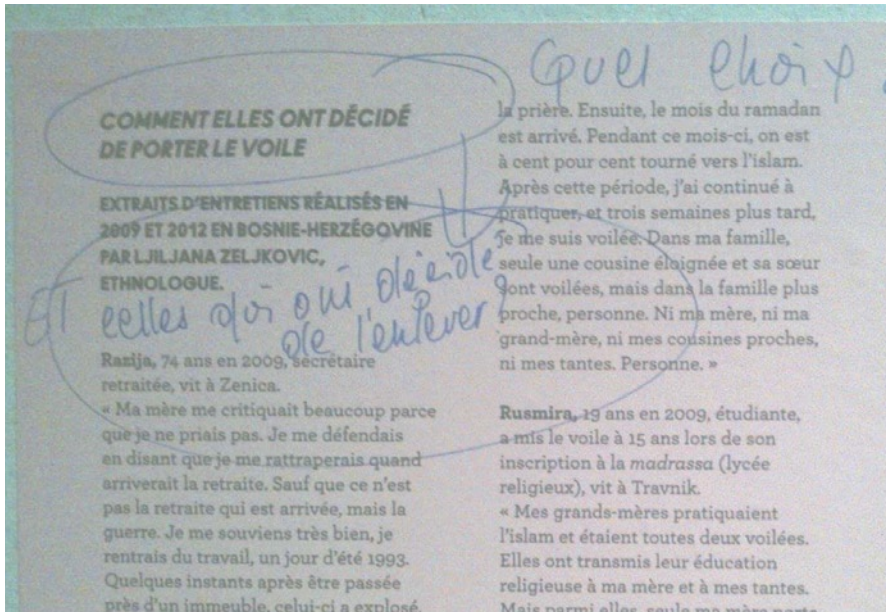 Quel choix
COMMENT ELLES ONT DÉCIDÉ
DE PORTER LE VOILE
EXTRAITS D'ENTRETIENS RÉALISÉS EN
2009 ET 2012 EN BOSNIE-HERZÉGOVINE
PAR LJILJANA ZELJKOVIC,
ETHNOLOGUE.
ET celles qui ont décidé
de l'enlever ?
Razija, 74 ans en 2009, secrétaire
retraitée, vit à Zenica.
« Ma mère me critiquait beaucoup parce
que je ne priais pas. Je me défendais
en disant que je me rattraperais quand
arriverait la retraite. Sauf que ce n'est
pas la retraite qui est arrivée, mais la
guerre. Je me souviens très bien, je
rentrais du travail, un jour d'été 1993.
Quelques instants après être passée
près d'un immeuble, celui-ci a explosé.
la prière. Ensuite, le mois du ramadan
est arrivé. Pendant ce mois-ci, on est
à cent pour cent tourné vers l'islam.
Après cette période, j'ai continué à
pratiquer, et trois semaines plus tard,
je me suis voilée. Dans ma famille,
seule une cousine éloignée et sa sœur
sont voilées, mais dans la famille plus
proche, personne. Ni ma mère, ni ma
grand-mère, ni mes cousines proches,
ni mes tantes. Personne. »
Rusmira, 19 ans en 2009, étudiante,
a mis le voile à 15 ans lors de son
inscription à la madrassa (lycée
religieux), vit à Travnik.
« Mes grands-mères pratiquaient
l'islam et étaient toutes deux voilées.
Elles ont transmis leur éducation
religieuse à ma mère et à mes tantes.
Mais parmi elles, seule ma mère porte